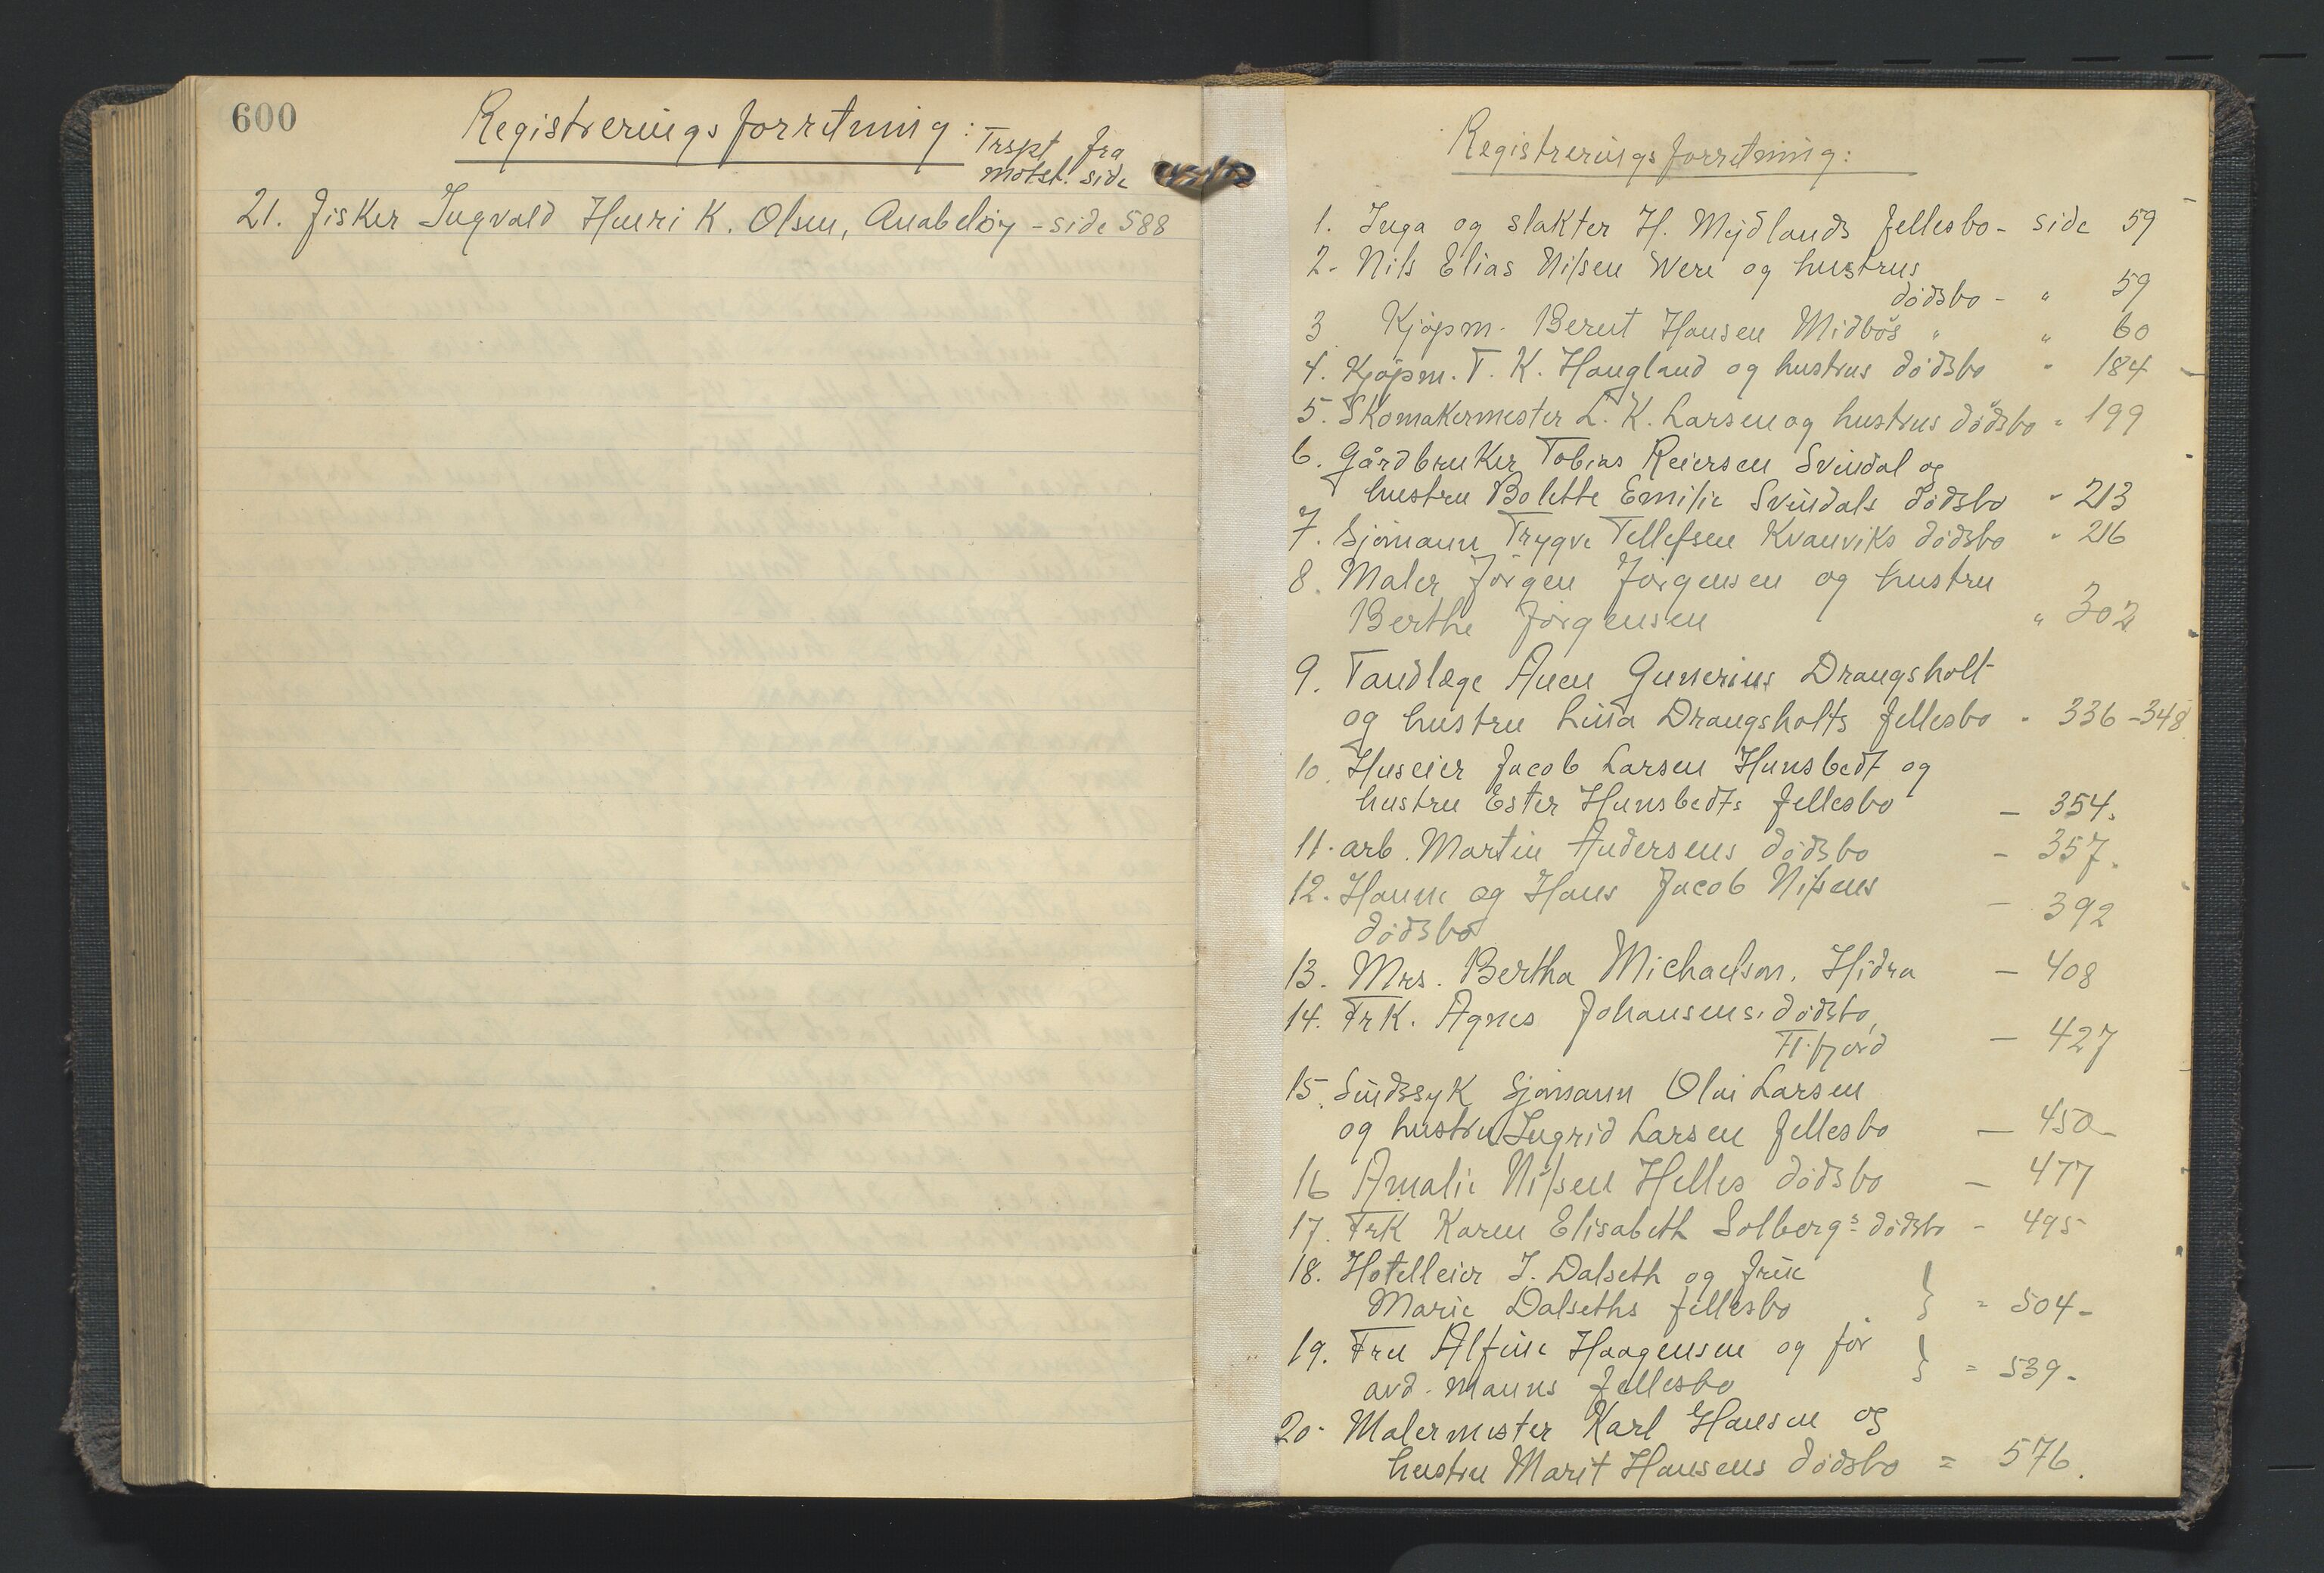 600
Registreringsforretning:
Trspt fra
motst. side
21. Fisker Ingvald Henri K. Olsen, Anabeløy - side 588
Registreringsforretning:
1. Inga og slakter H. Mydlands fellesbo - side 59
2. Nils Elias Nilsen Were og hustrus
dødsbo - " 59
3 Kjøpm. Bernt Hansen Midbøs " " 60
4. Kjøpm. T. K. Haugland og hustrus dødsbo " 184
5. Skomakermester L. K. Larsen og hustrus dødsbo " 199
6. Gårdbruker Tobias Reiersen Svindal og
hustru Bolette Emilie Svindals dødsbo " 213
7. Sjømann Trygve Tellefsen Kvanviks dødsbo " 216
8. Maler Jørgen Jørgensen og hustru
Berthe Jørgensen " 302
9. Tandlæge Anen Gunerius Drangsholt
og hustru Lina Drangsholts fellesbo " 336-348
10. Huseier Jacob Larsen Hunsbedt og
hustru Ester Hunsbedts fellesbo - 354.
11. arb. Martin Andersens dødsbo - 357.
12. Hanne og Hans Jacob Nilsens
dødsbo - 392
13. Mrs. Bertha Michaelson, Hidra - 408
14. Frk. Agnes Johansens dødsbo,
Fl.fjord - 427
15. Sindssyk sjømann Olai Larsen
og hustru Ingrid Larsen fellesbo - 450-
16 Amalie Nilsen Helles dødsbo - 477
17. Frk Karen Elisabeth Solbergs dødsbo - 495
18. Hotelleier I. Dalseth og frue
Marie Dalseths fellesbo } = 504-
19. Fru Alfine Haagensen og før
avd. manns fellesbo } = 539-
20. Malermester Karl Hansen og
hustru Marit Hansens dødsbo = 576.